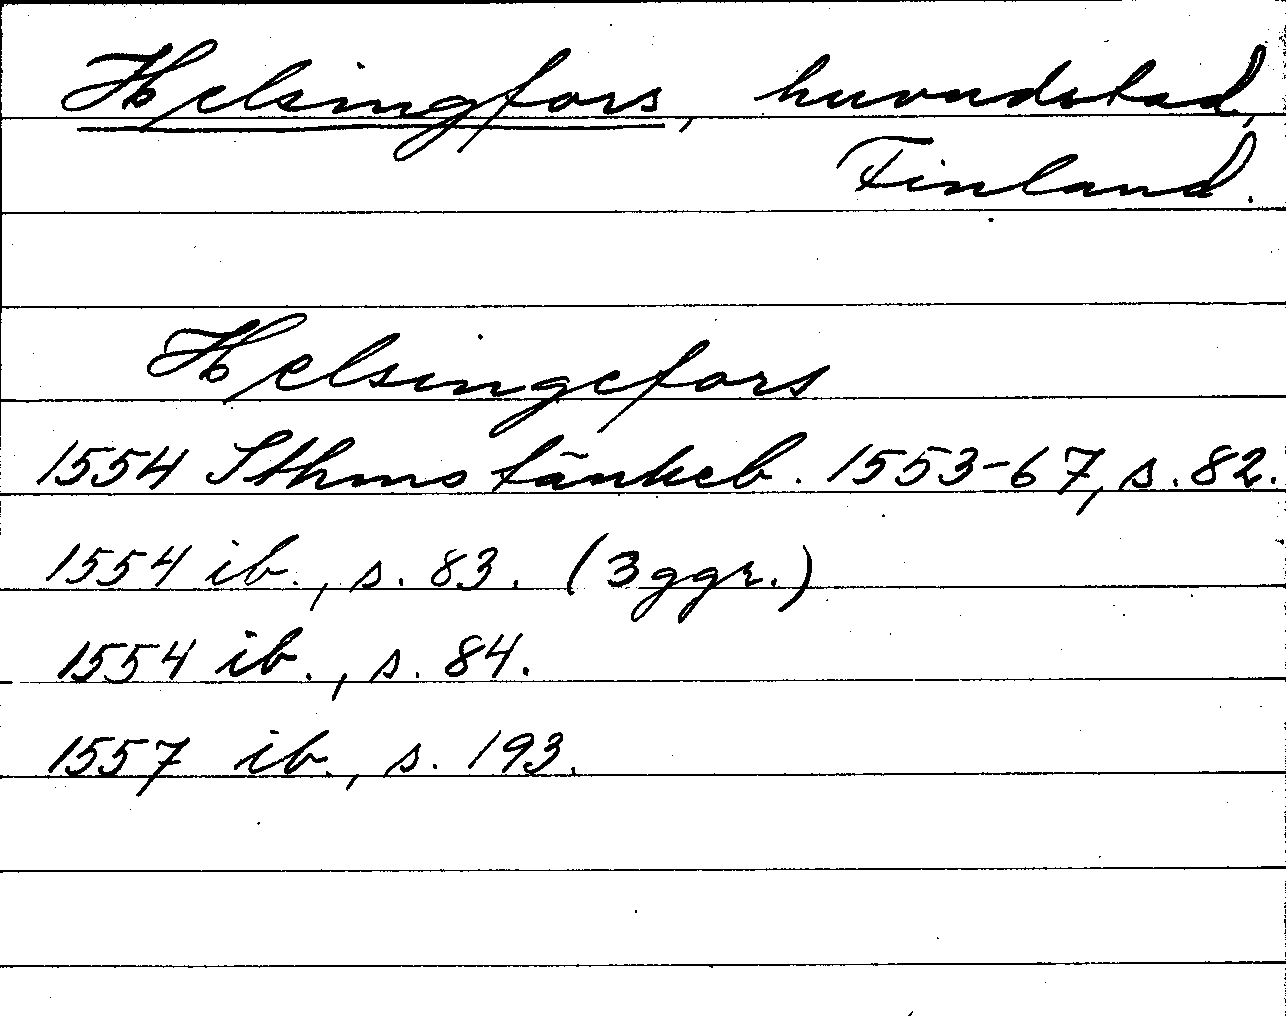 Helsingfors, huvudstad,
Finland.
Helsingefors
1554 Sthms tänkeb. 1553-67, s. 82.
1554 ib., s. 83. (3 ggr.)
1554 ib., s. 84.
1557 ib., s. 193.